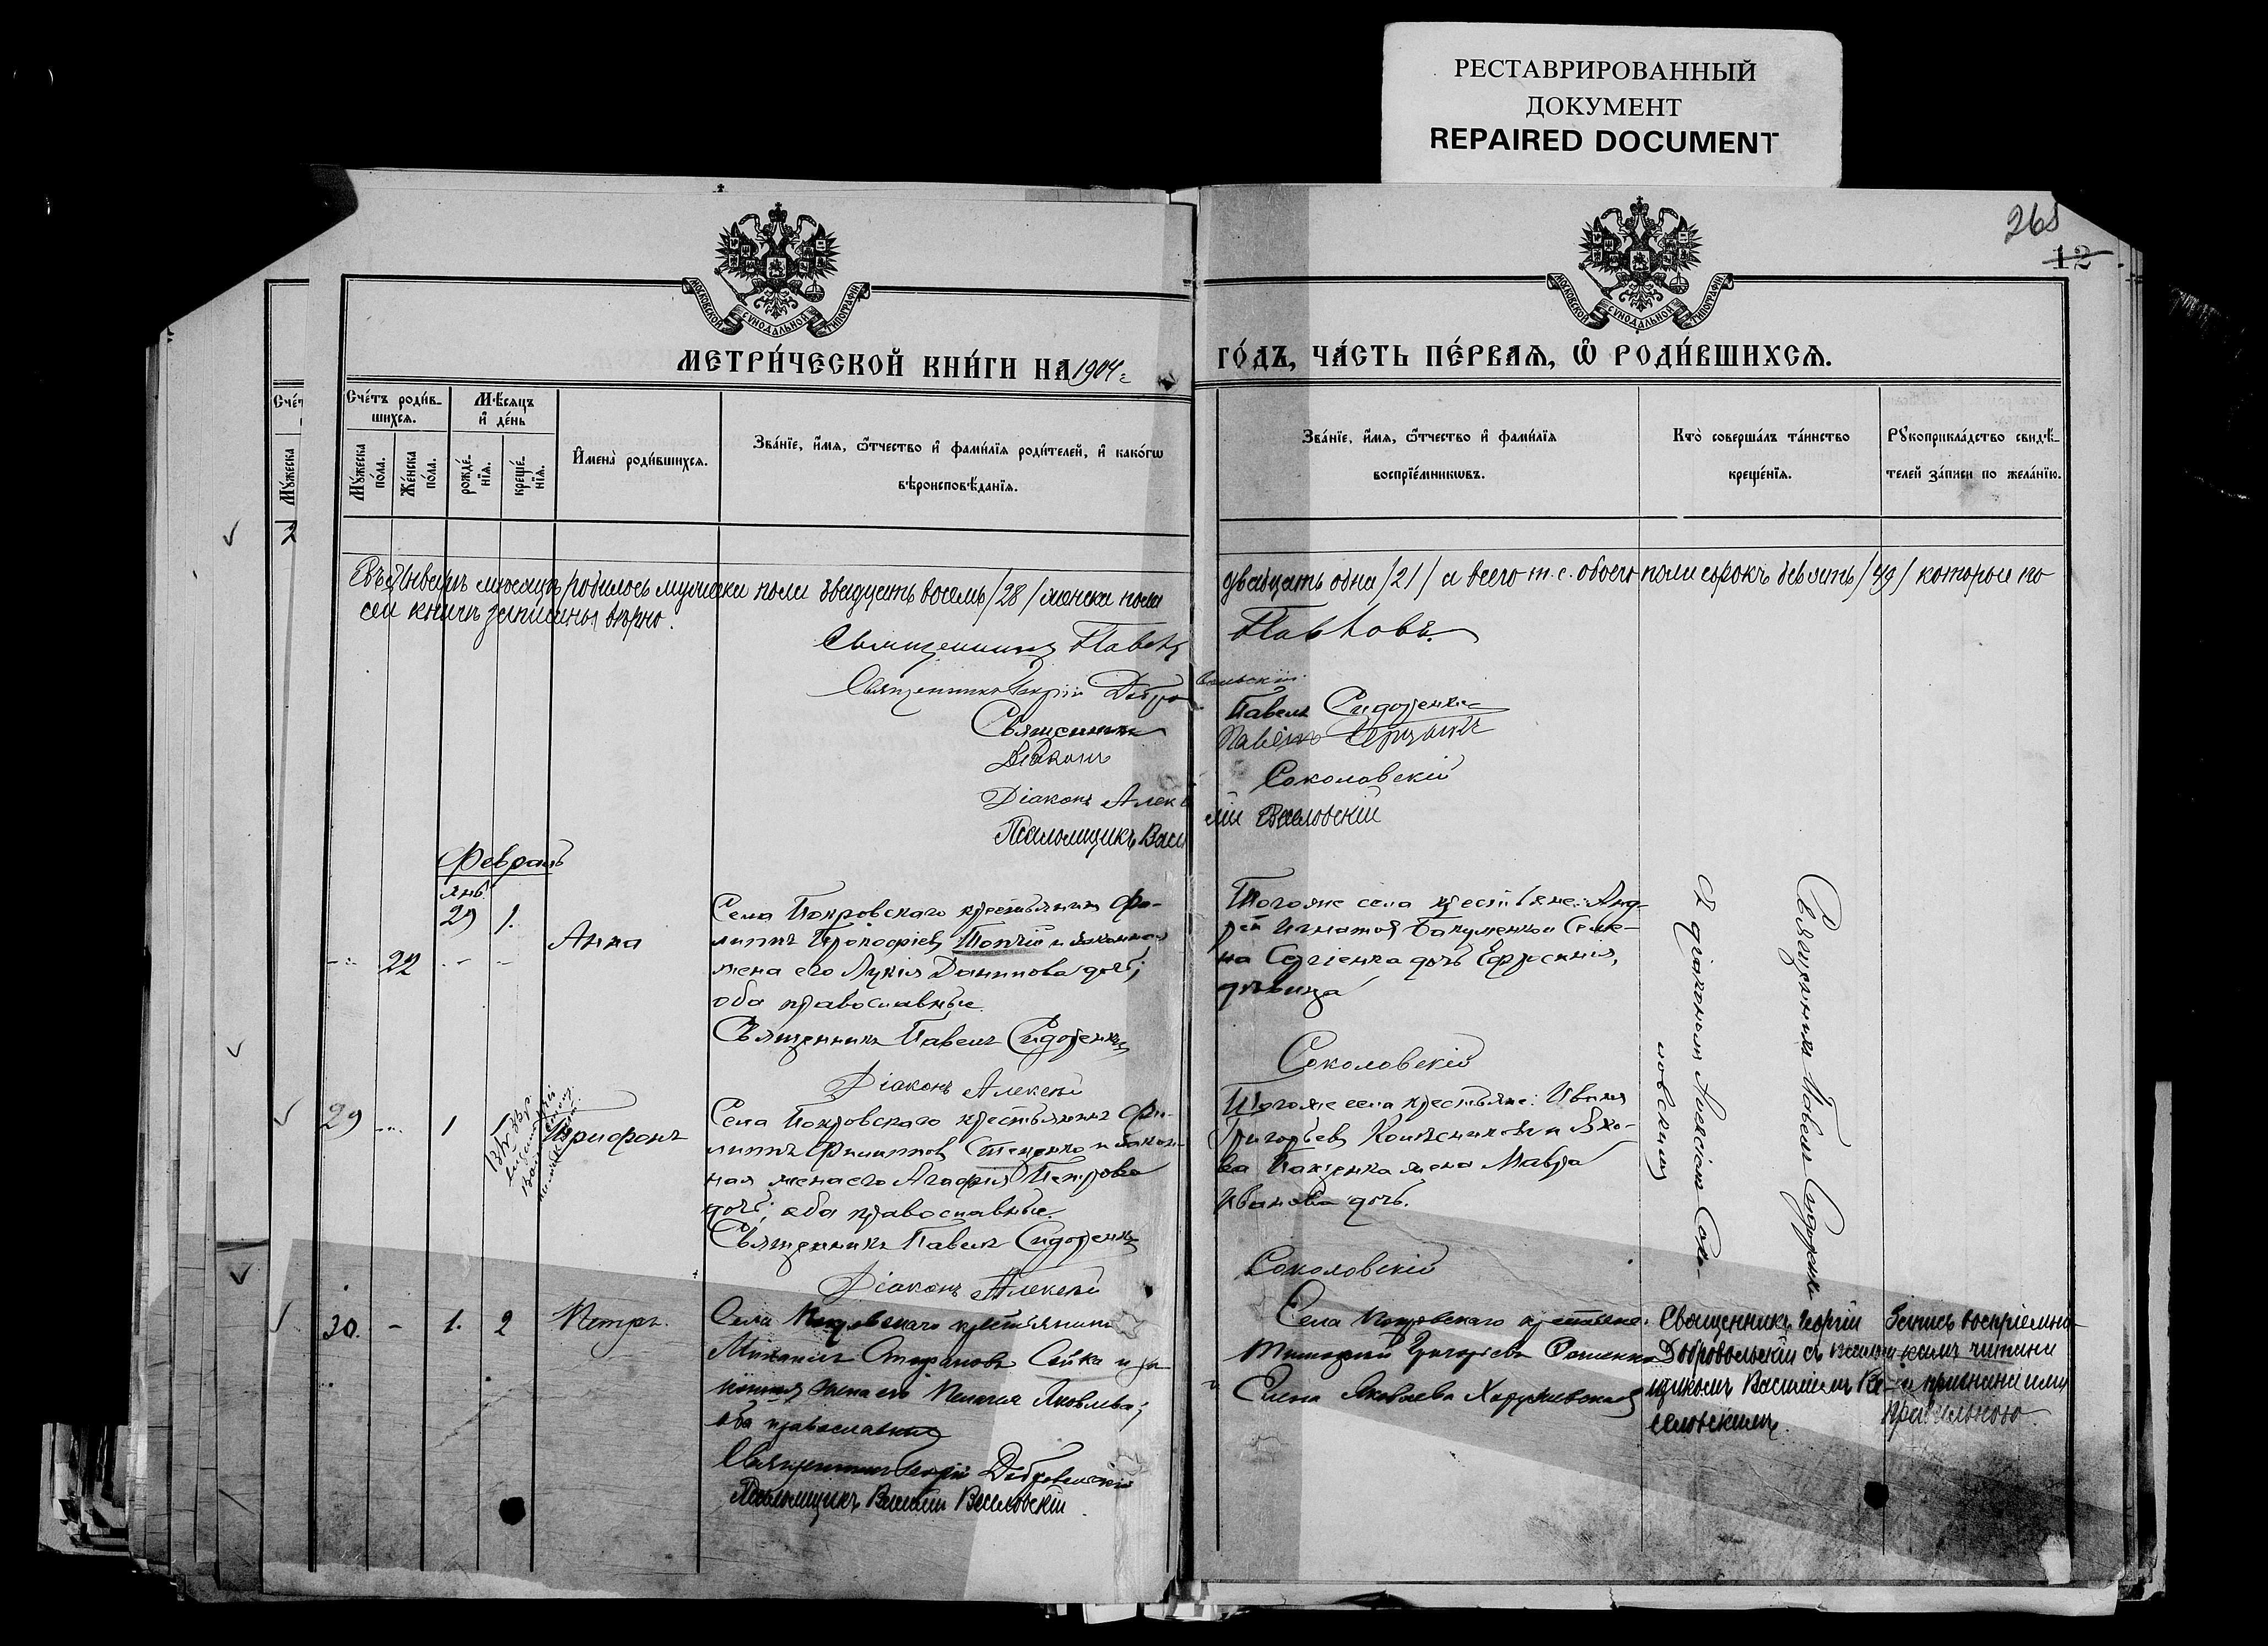 РЕСТАВРИРОВАННЫЙ
ДОКУМЕНТ
REPAIRED DOCUMENT
265
12
МОСКОВСКОЙ СѴНОДАЛЬНОЙ ТИПОГРАФІИ
МОСКОВСКОЙ СѴНОДАЛЬНОЙ ТИПОГРАФІИ
МЕТРИ́ЧЕСКОЙ КНИ́ГИ НА 1904
ГО́ДЪ, ЧА́СТЬ ПЕ́РВАѦ, Ѡ РОДИ́ВШИХСѦ.
Сче́т
Мꙋ́жеска
2
Сче́тъ роди́в-
шихсѧ.
Мꙋ́жеска
по́ла.
Же́нска
по́ла.
Мѣ́сѧцъ
и҆ де́нь
рожде́-
нїѧ.
креще́-
нїѧ.
И҆мена̀ роди́вшихсѧ.
Зва́нїе, и҆́мѧ, ѻ҆́тчество и҆ фамѝлїѧ роди́телей, и҆ како́гѡ
вѣроисповѣ́данїѧ.
Зва́нїе, и҆́мѧ, ѻ҆́тчество и҆ фами́лїѧ
воспрїе́мникѡвъ.
Кто̀ соверша́лъ та́инство
креще́нїѧ.
Рꙋкоприкла́дство свидѣ́-
телей за́писи по жела́нїю.
Январѣ мѣсяцѣ родилось мужеска пола двадцать восемь /28/ женска пола
двадцать одна /21/ а всего т.е. обоего пола сорокъ девять /49/ которые по
сей книгѣ записаны вѣрно.
Священникъ Павелъ
Павловъ.
Священникъ Георгій Добро
вольскій.
Священникъ
Павелъ Сидоренко
Діаконъ
Павелъ
Діаконъ Алексѣй
Соколовскій
Псаломщикъ Васи
лій Веселовскій
Февраль
Янв.
29 1.
22
Анна
Села Покровскаго крестьянинъ Фи-
липпъ Прокофіевъ Топчій и законная
жена его Лукія Даниилова дочь;
оба православные.
Священникъ Павелъ Сидоренко
Діаконъ Алексѣй
Тогоже села крестьяне: Анд-
рей Игнатовъ Бакуменко и Семе-
на Сергіенка дочь Ефросинія,
дѣвица
Соколовскій
Священникъ Павелъ Сидоренко
съ діакономъ Алексѣемъ Соко-
ловскимъ
29 1
Трифонъ
Села Покровскаго крестьянинъ Фи-
липпъ Филипповъ Стеценко и закон-
ная жена его Агафія Петрова
дочь; оба православные.
Священникъ Павелъ Сидоренко
Діаконъ Алексѣй
Тогоже села крестьяне: Иванъ
Григорьевъ Колесниковъ и Яко-
ва жена Мавра
Иванова дочь.
Соколовскій
30. - 1. 2
Петръ.
Села Покровскаго крестьянинъ
Михаилъ Стефановъ Сойка и за
конная жена его Пелагія Яковлева;
оба православные
Священникъ Георгій Добровольскій
Псаломщикъ Василій Веселовскій.
Села Покровскаго крестьяне:
Тимофей Григорьевъ
Елена Яковлева
Священникъ Георгій
Добровольскій съ псалом
щикомъ Василіемъ Ве-
селовскимъ.
Запись воспріемни-
камъ читана
и признана ими
правильною.